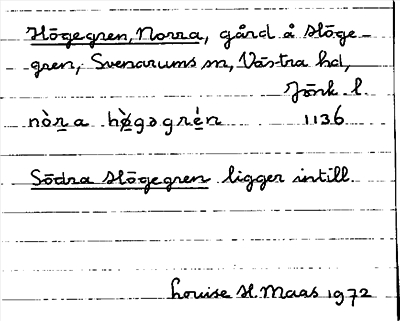 Högegren, Norra, gård å Höge-
gren, Svenarums sn, Västra hd,
Jönk. l.
nò̱ra hø̱̀gəgré̱n 1136
Södra Högegren ligger intill.
Louise H. Maas 1972